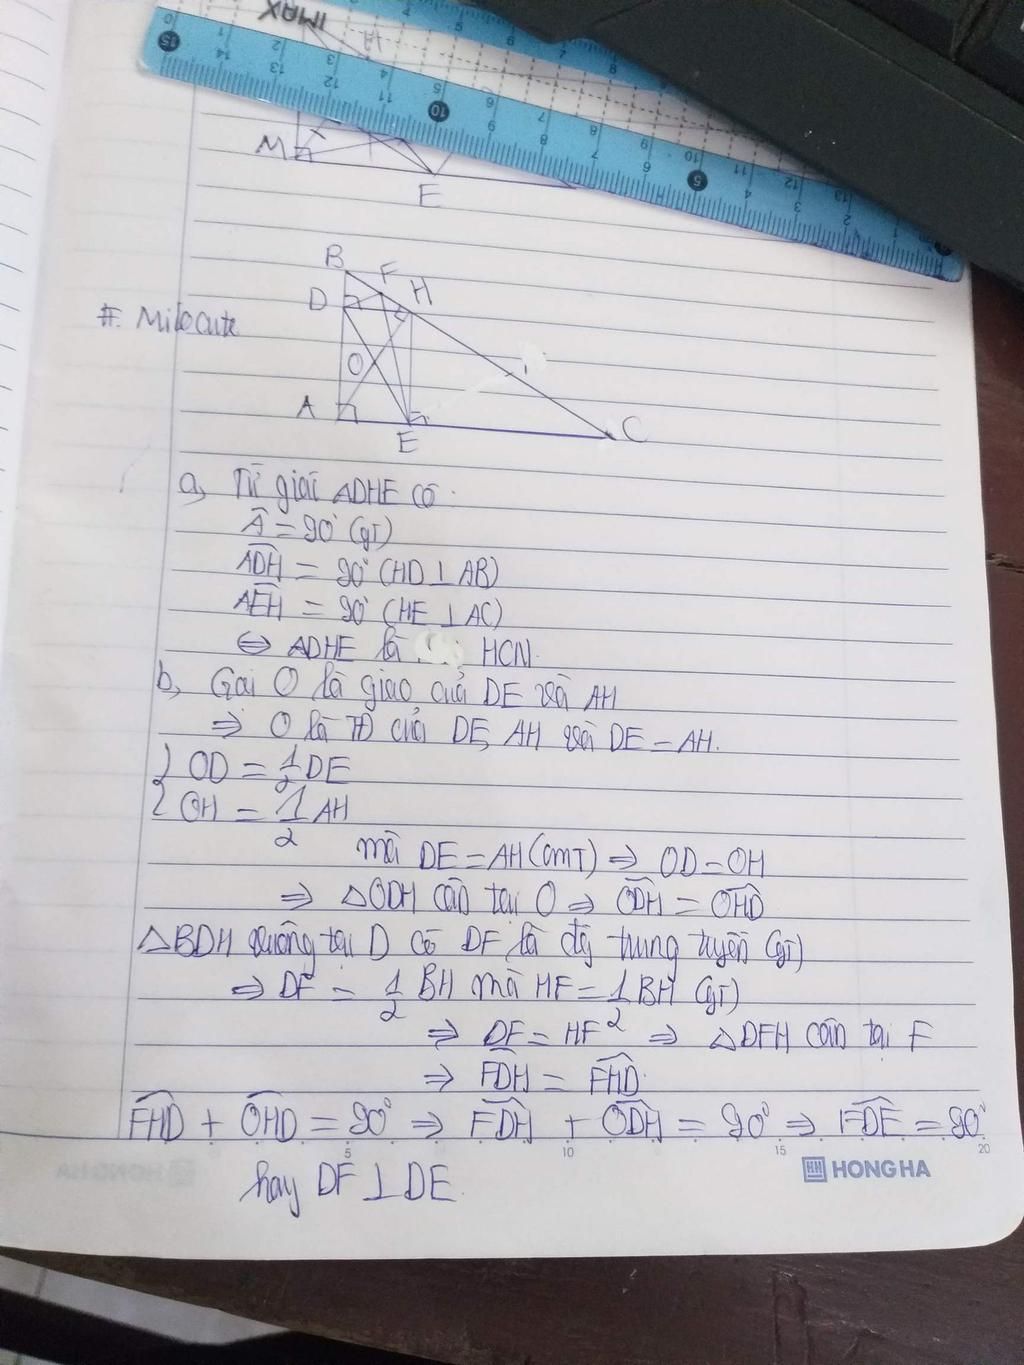 IMAX
M
E
B
F
D
H
#. Milo Cute
O
A
E
C
a, Tứ giác ADHE có:
Â = 90° (gt)
ADH = 90° (HD ⊥ AB)
AEH = 90° (HE ⊥ AC)
⇔ ADHE là HCN.
b, Gọi O là giao của DE và AH
⇒ O là TĐ của DE, AH và DE = AH.
{ OD = 1/2 DE
{ OH = 1/2 AH
mà DE = AH (cmt) ⇒ OD = OH
⇒ △ODH cân tại O ⇒ ODH = OHD
△BDH vuông tại D có DF là đg trung tuyến (gt)
⇒ DF = 1/2 BH mà HF = 1/2 BH (gt)
⇒ DF = HF ⇒ △DFH cân tại F
⇒ FDH = FHD.
FHD + OHD = 90° ⇒ FDH + ODH = 90° ⇒ FDE = 90°
5 10 15 20
HONG HA
hay DF ⊥ DE.